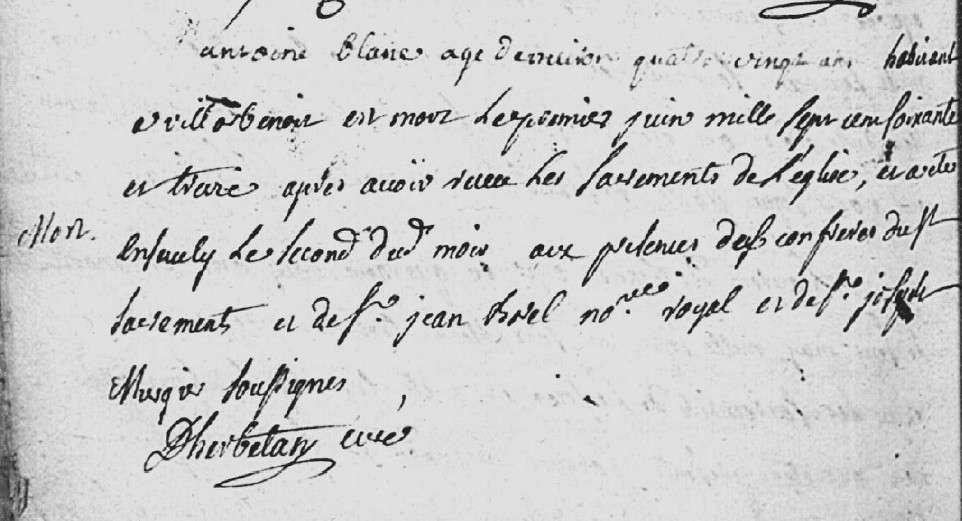 antoine blanc age denviron quatre vingt ans habitant
a villebenoit est mort le premier juin mille sept cent soixante
et treize apres avoir receu les sacrements de l'eglise, et a ete
Mort.
ensevely le second dud. mois aux presences des confreres du st
sacrements et de sr. jean borel nore. royal et de sr. joseph
Mergier soussignes
Dherbetan curé